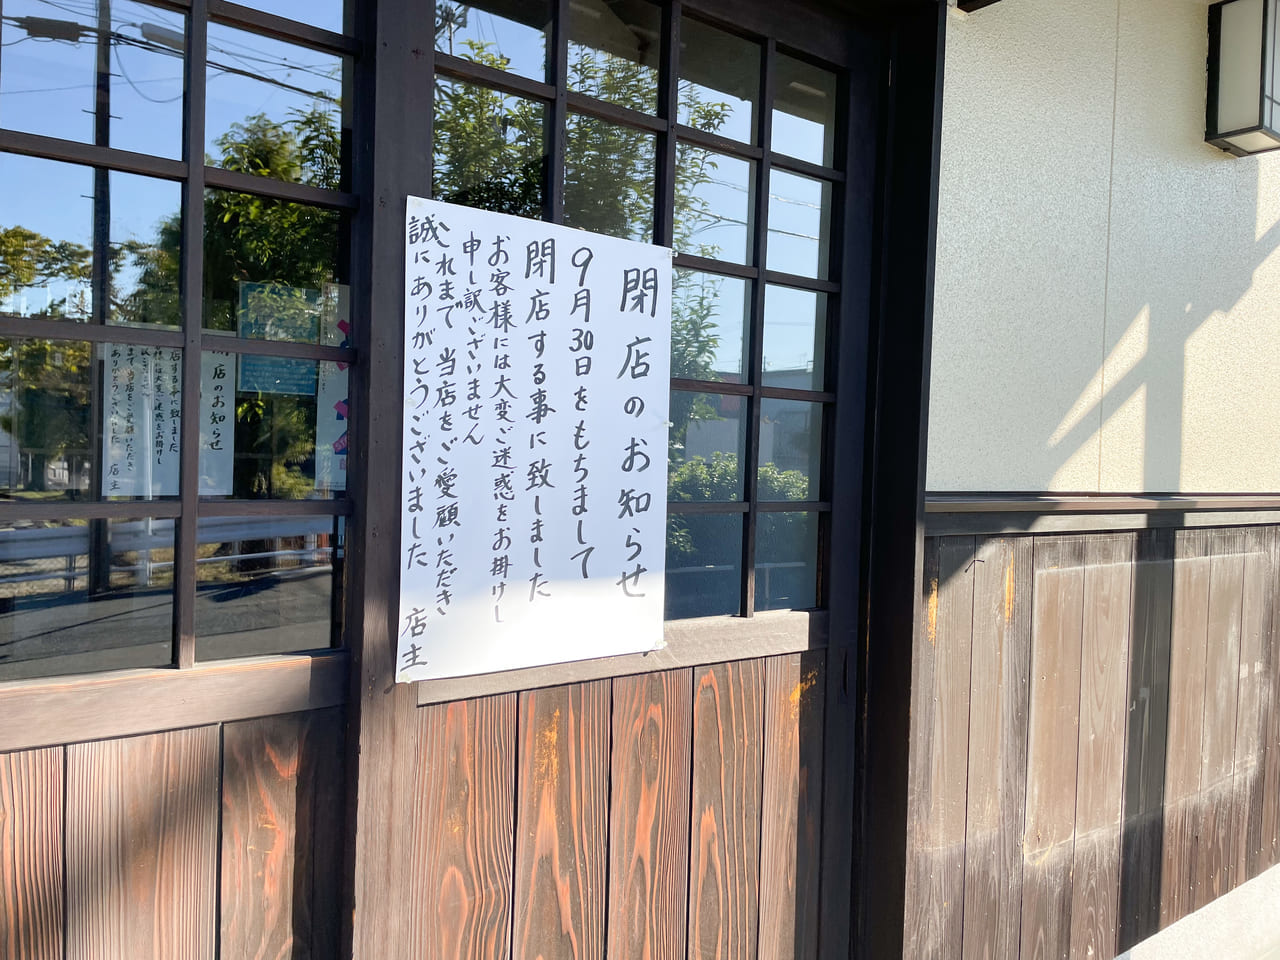 閉店のお知らせ
9月30日をもちまして
閉店する事に致しました
お客様には大変ご迷惑をお掛けし
申し訳ございません
これまで当店をご愛顧いただき
誠にありがとうございました 店主
店のお知らせ
店する事に致しました
様には大変ご迷惑をお掛けし
まで当店をご愛顧いただき
ありがとうございました 店主